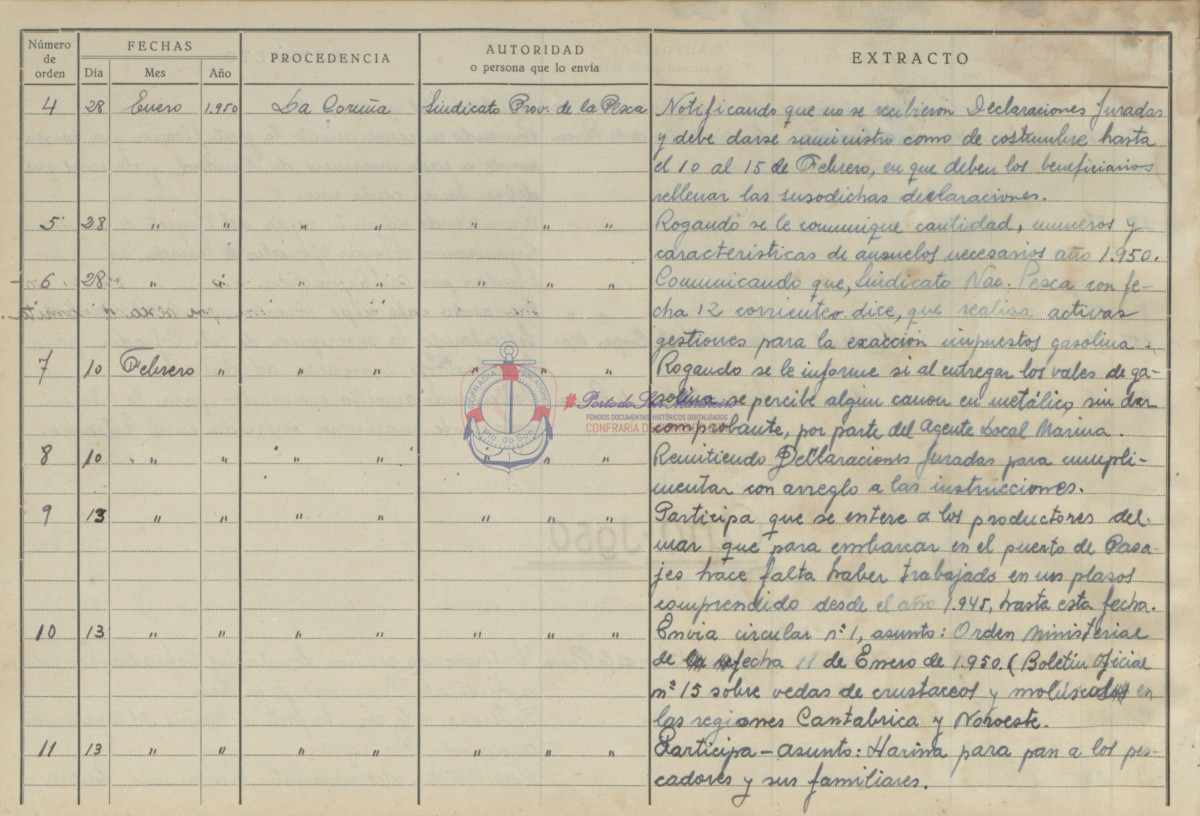 Número de orden FECHAS PROCEDENCIA AUTORIDAD o persona que lo envía EXTRACTO
Día Mes Año
4 28 Enero 1.950 La Coruña Sindicato Prov. de la Pesca Notificando que no se recibieron Declaraciones Juradas
y debe darse suministro como de costumbre hasta
el 10 al 15 de Febrero, en que deben los beneficiarios
rellenar las susodichas declaraciones.
5 28 " " " " " " " Rogando se le comunique cantidad, numeros y
caracteristicas de anzuelos necesarios año 1.950.
6 28 " " " " " " " Comunicando que, Sindicato Nac. Pesca con fe-
cha 12 corrientes dice, que realiza activas
gestiones para la exacción impuestos gasolina.
7 10 Febrero " " " " " " Rogando se le informe si al entregar los vales de ga-
solina se percibe algun canon en metálico sin dar
comprobante, por parte del Agente Local Marina.
8 10 " " " " " " " Remitiendo Declaraciones Juradas para cumpli-
mentar con arreglo a las instrucciones.
9 13 " " " " " " " Participa que se entere a los productores del
mar que para embarcar en el puerto de Pasa-
jes hace falta haber trabajado en un plasos
comprendido desde el año 1.945, hasta esta fecha.
10 13 " " " " " " " Envia circular nº 1, asunto: Orden Ministerial
de fecha 11 de Enero de 1.950. (Boletin Oficial
nº 15 sobre vedas de crustaceos y moluscos en
las regiones Cantabrica y Noroeste.
11 13 " " " " " " " Participa - asunto: Harina para pan a los pes-
cadores y sus familiares.
FONDOS DOCUMENTAIS HISTÓRICOS DIGITALIZADOS